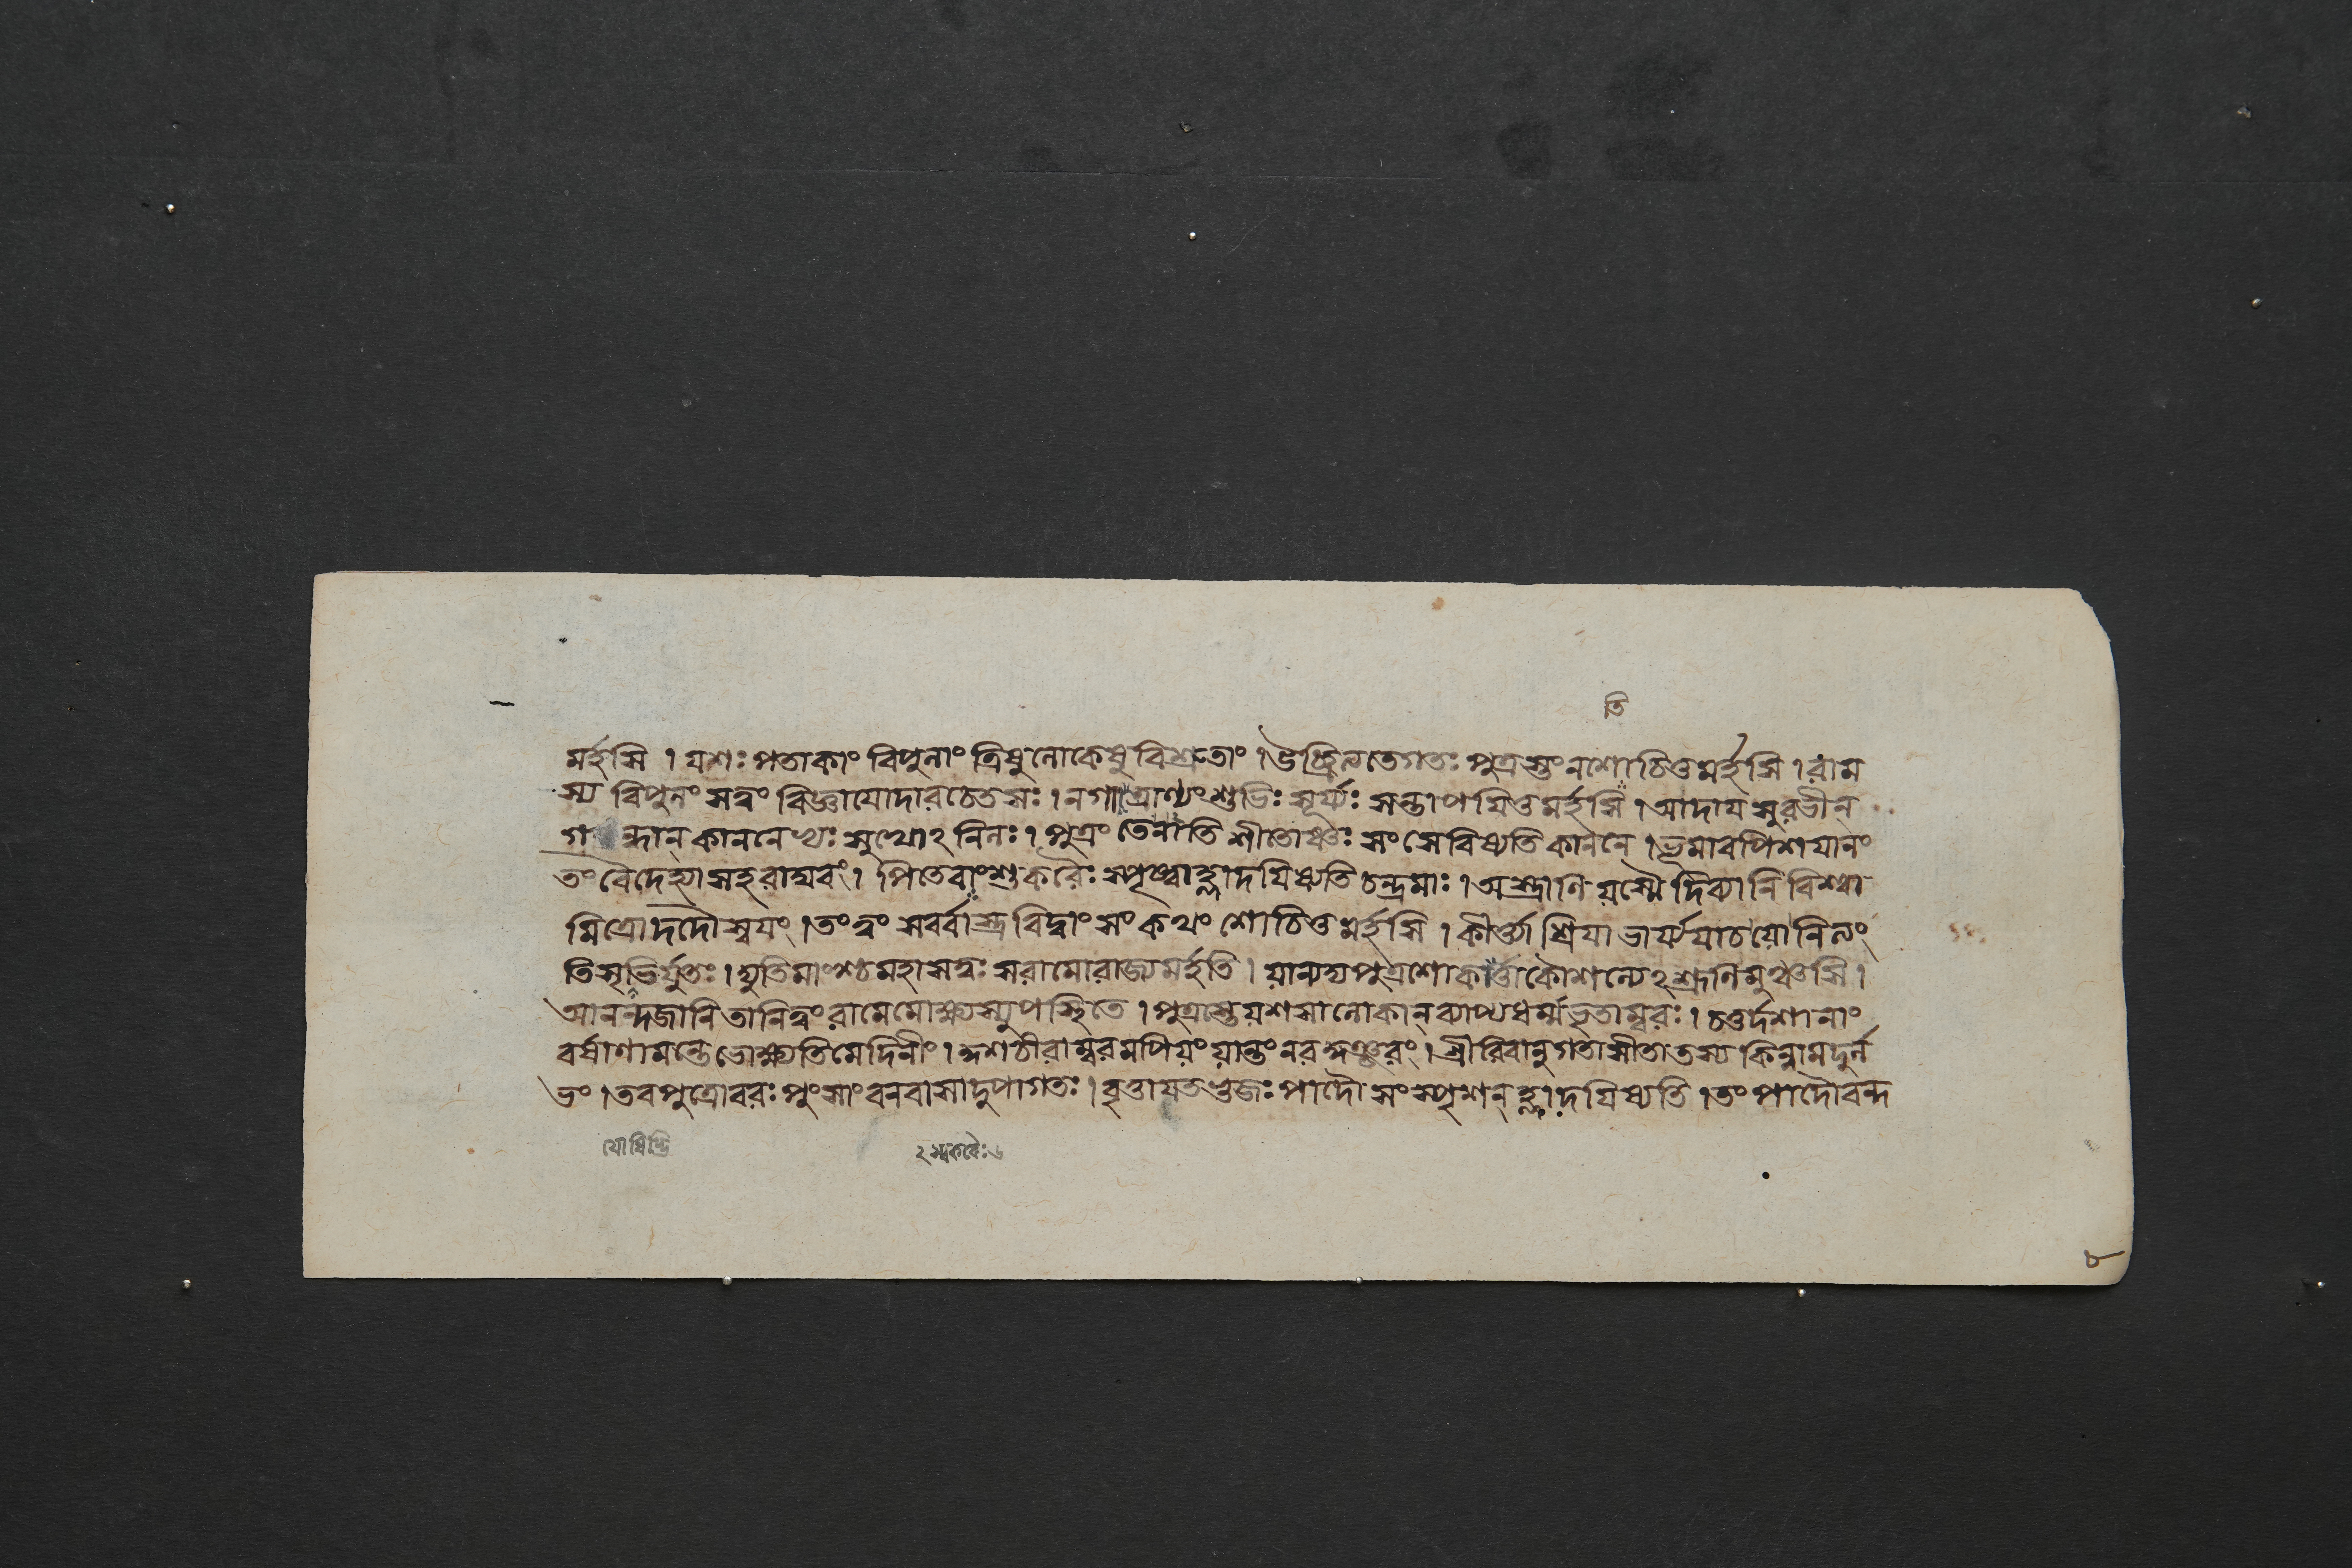 তি
মর্হসি । যশঃ পতাকাং বিপুলাং ত্রিষু লোকেষু বিশ্রুতাং । গতঃ পুত্রস্তং ন শোচিতুমর্হসি । রাম
স্য বিপুলং সত্ত্বং বিজ্ঞায়োদারচেতসঃ । ন গাত্রাণ্যংশুভিঃ সূর্য্যঃ সন্তাপয়িতুমর্হসি । আদায় সুরভীন্
গন্ধান্ কাননেভ্যঃ সুখোঽনিলঃ । পুত্রং তে নাতিশীতোষ্ণঃ সংসেবিষ্যতি কাননে । ভূমাবপি শয়ানং
তং বৈদেহ্যা সহ রাঘবং । পিতেবাংশুকরৈঃ স্পৃষ্ট্বাহ্লাদয়িষ্যতি চন্দ্রমাঃ । অস্ত্রাণি যস্মৈ দিব্যানি বিশ্বা
মিত্রো দদৌ স্বয়ং । তং ত্বং সর্ব্বাস্ত্রবিদ্বাংসং কথং শোচিতুমর্হসি । কীর্ত্ত্যা শ্রিয়া ভার্য্যয়া চ যো নিত্যং
তিসৃভির্যুতঃ । দ্যুতিমাংশ্চ মহাসত্ত্বঃ স রামো রাজ্যমর্হতি । যান্যদ্য পুত্রশোকার্ত্তা কৌশল্যেঽশ্রূণি মুঞ্চসি ।
আনন্দজানি তানি ত্বং রামে মোক্ষ্যস্যুপস্থিতে । পুত্রস্তে যশসা লোকান্ ব্যাপ্য ধর্ম্মভৃতাম্বরঃ । চতুর্দশানাং
বর্ষাণামন্তে ভোক্ষ্যতি মেদিনীং । কুশচীরাম্বরমপি যং যান্তং । শ্রীরিবানুগতা সীতা তস্য কিন্নাম দুর্ল
ভং । তব পুত্রো বরঃ পুংসাং বনবাসাদুপাগতঃ । বৃত্তায়তভুজঃ পাদৌ সংস্পৃশন্ হ্লাদয়িষ্যতি । তং পাদৌ বন্দ
৮